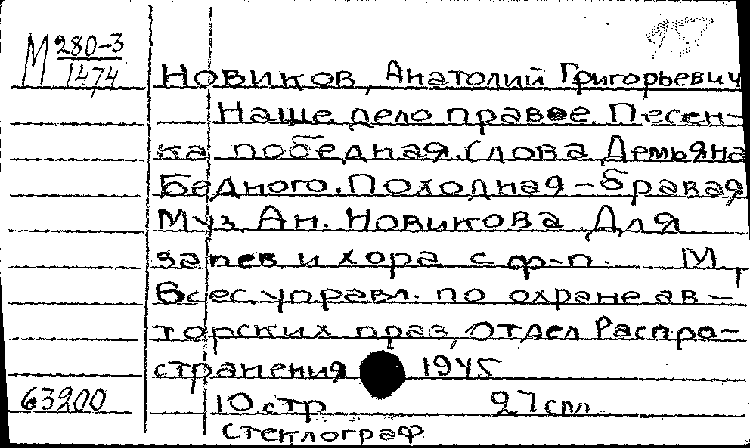 М 280-3
1474
Новиков, Анатолий Григорьевич
Наше дело правое. Песен-
ка победная. Слова Демьяна
Бедного. Походная - бравая
Муз. Ан. Новикова. Для
запев и хора с ф-п. М.,
Всес. управл. по охране ав-
торских прав, Отдел Распро-
странения 1945
63200 10 стр. 27 см
стеклограф